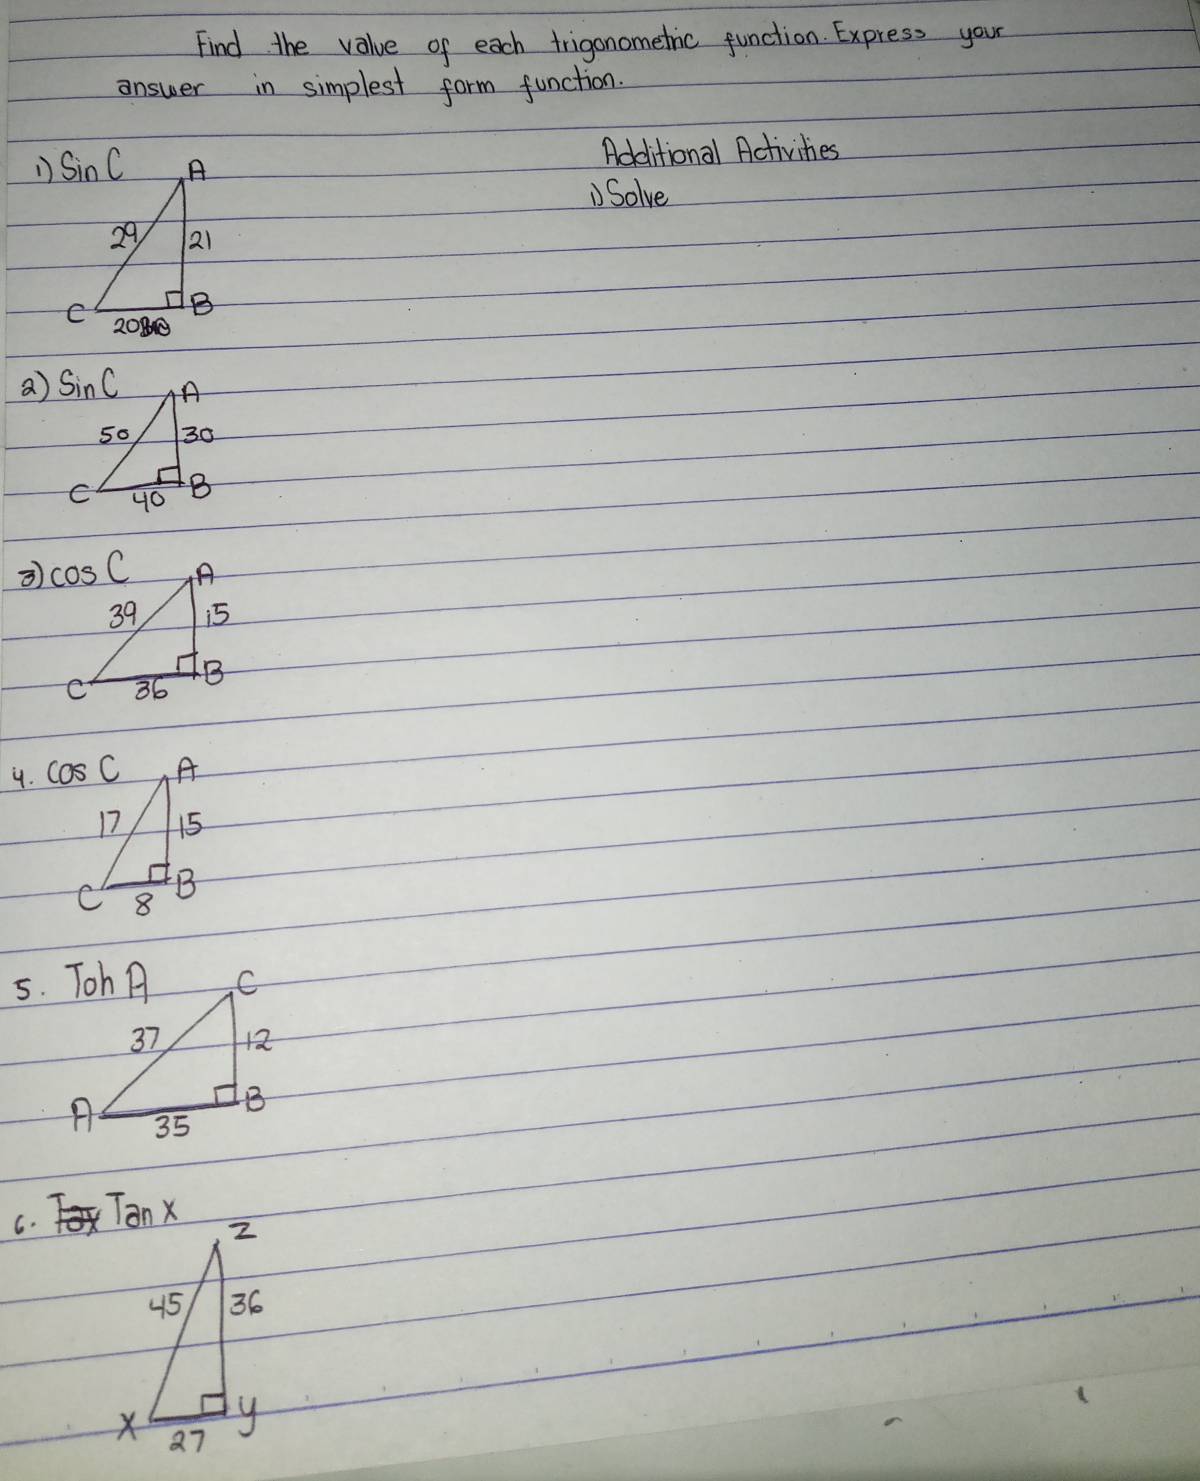 Find the value of each trigonometric function. Express your
answer in simplest form function.
1) Sin C
A
29
21
C
B
20
Additional Activities
1) Solve
2) Sin C
A
50
30
C
B
40
3) cos C
A
39
15
C
B
36
4. cos C
A
17
15
C
B
8
5. Toh A
C
37
12
A
B
35
6. Tan x
Z
45
36
X
y
27